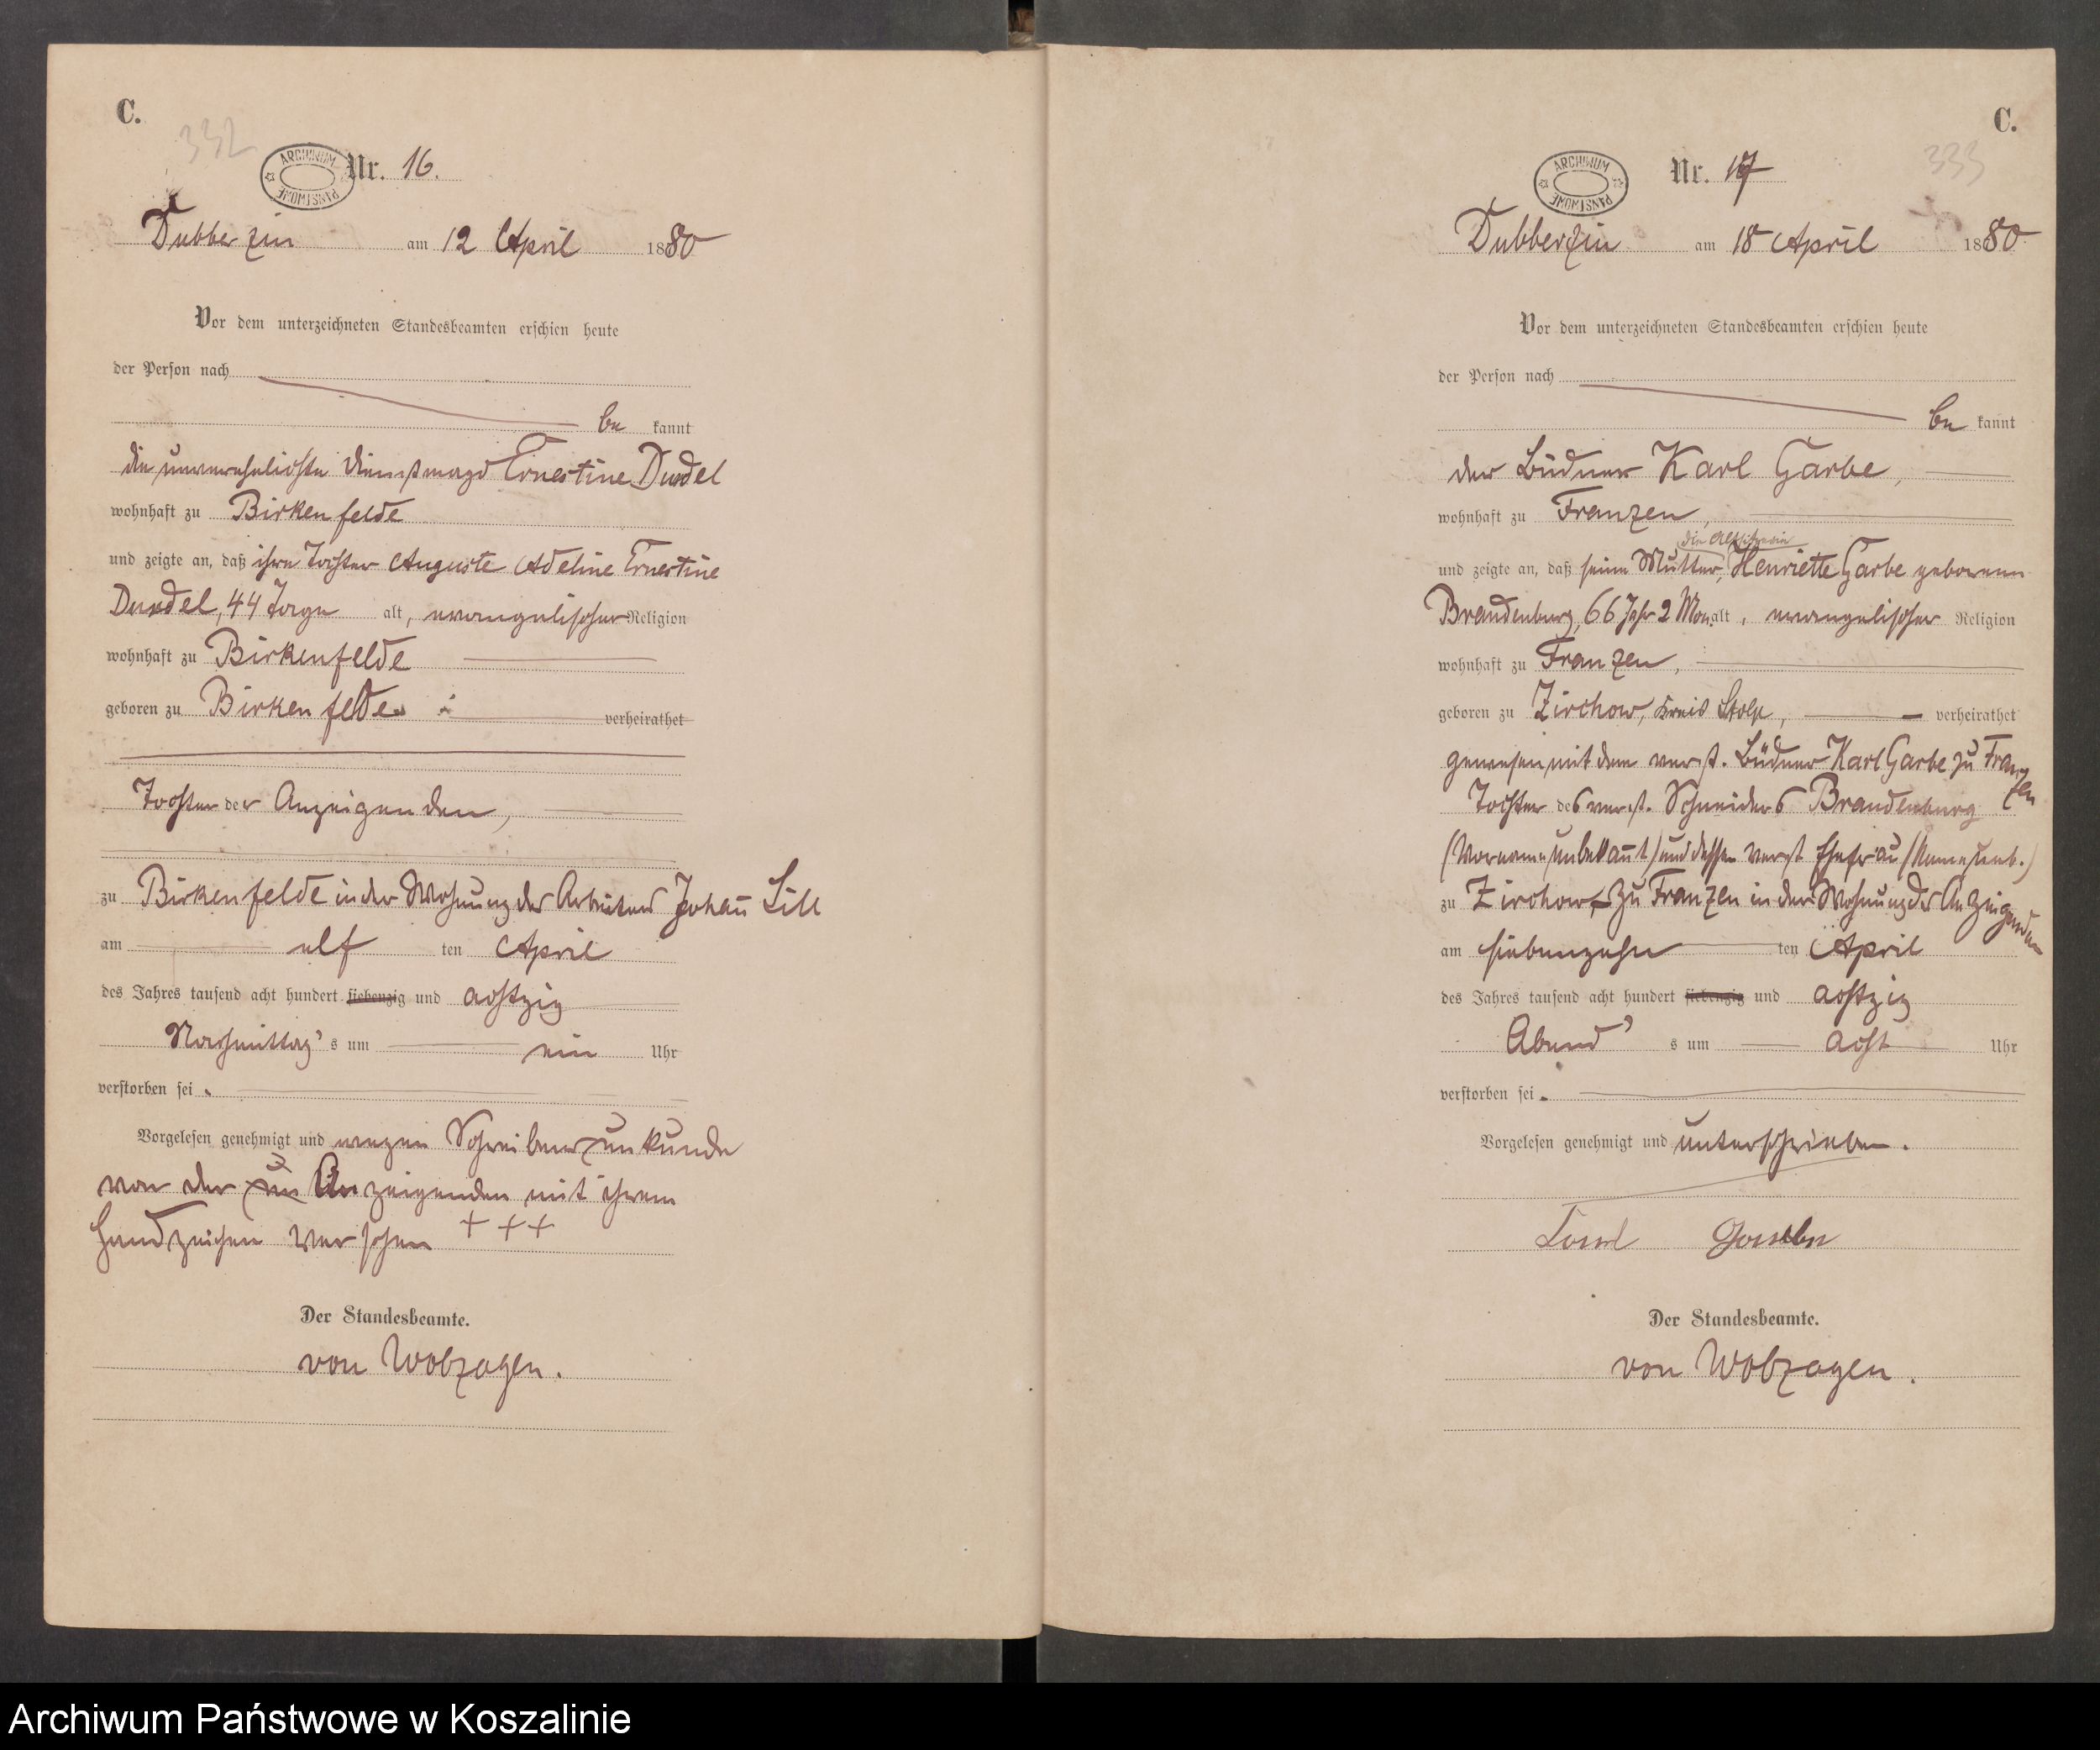 C.
332
ARCHIWUM PAŃSTWOWE
Nr. 16.
Dubberzin am 12 April 1880
Vor dem unterzeichneten Standesbeamten erschien heute
der Person nach
be kannt
die unverehelichte Dienstmagd Ernestine Dundel
wohnhaft zu Birkenfelde
und zeigte an, daß ihre Tochter Auguste Adeline Ernestine
Dundel, 44 Tage alt, evangelischer Religion
wohnhaft zu Birkenfelde
geboren zu Birkenfelde verheirathet
Tochter der Anzeigenden,
zu Birkenfelde in der Wohnung des Arbeiters Johañ Lill
am elf ten April
des Jahres tausend acht hundert siebenzig und achtzig
Nachmittag's um ein Uhr
verstorben sei.
Vorgelesen genehmigt und wegen Schreibens unkunde
von der Anzeigenden mit ihrem
Handzeichen versehen +++
Der Standesbeamte.
von Wobzagen.
C.
333
ARCHIWUM PAŃSTWOWE
Nr. 17
Dubberzin am 18 April 1880
Vor dem unterzeichneten Standesbeamten erschien heute
der Person nach
be kannt
der Büdner Karl Garbe,
wohnhaft zu Franzen,
die Altsitzerin
und zeigte an, daß seine Mutter, Henriette Garbe geborene
Brandenburg, 66 Jahr 2 Mon. alt, evangelischer Religion
wohnhaft zu Franzen,
geboren zu Zirchow, Kreis Stolp, verheirathet
gewesen mit dem verst. Büdner Karl Garbe zu Franzen
Tochter des verst. Schneiders Brandenburg
(Vorname unbekañt) und dessen verst Ehefrau (Name unb.)
zu Zirchow, zu Franzen in der Wohnung des Anzeigenden
am siebenzehn ten April
des Jahres tausend acht hundert siebenzig und achtzig
Abend's um acht Uhr
verstorben sei.
Vorgelesen genehmigt und unterschrieben.
Karl Garbe
Der Standesbeamte.
von Wobzagen.
Archiwum Państwowe w Koszalinie